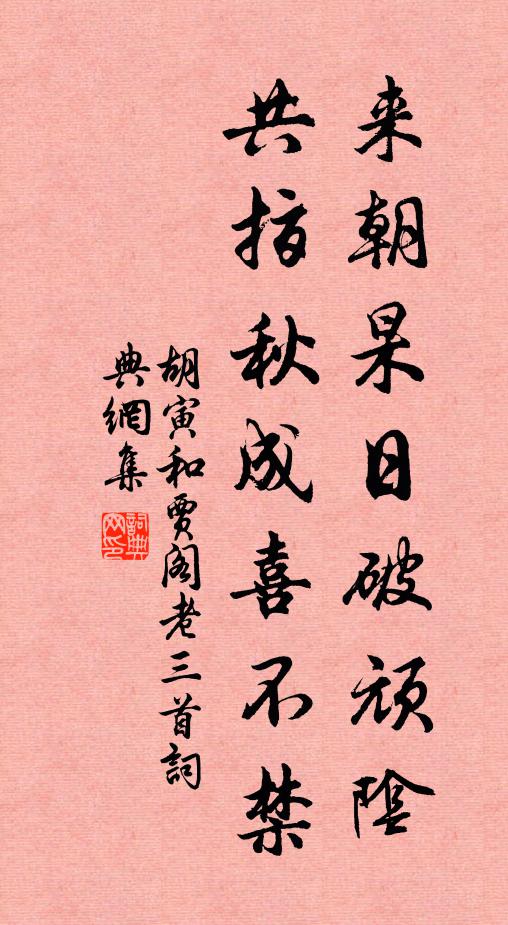 来朝杲日破頑陰
共指秋成喜不禁
胡寅和賈閣老三首詞
典網集
詞典網印